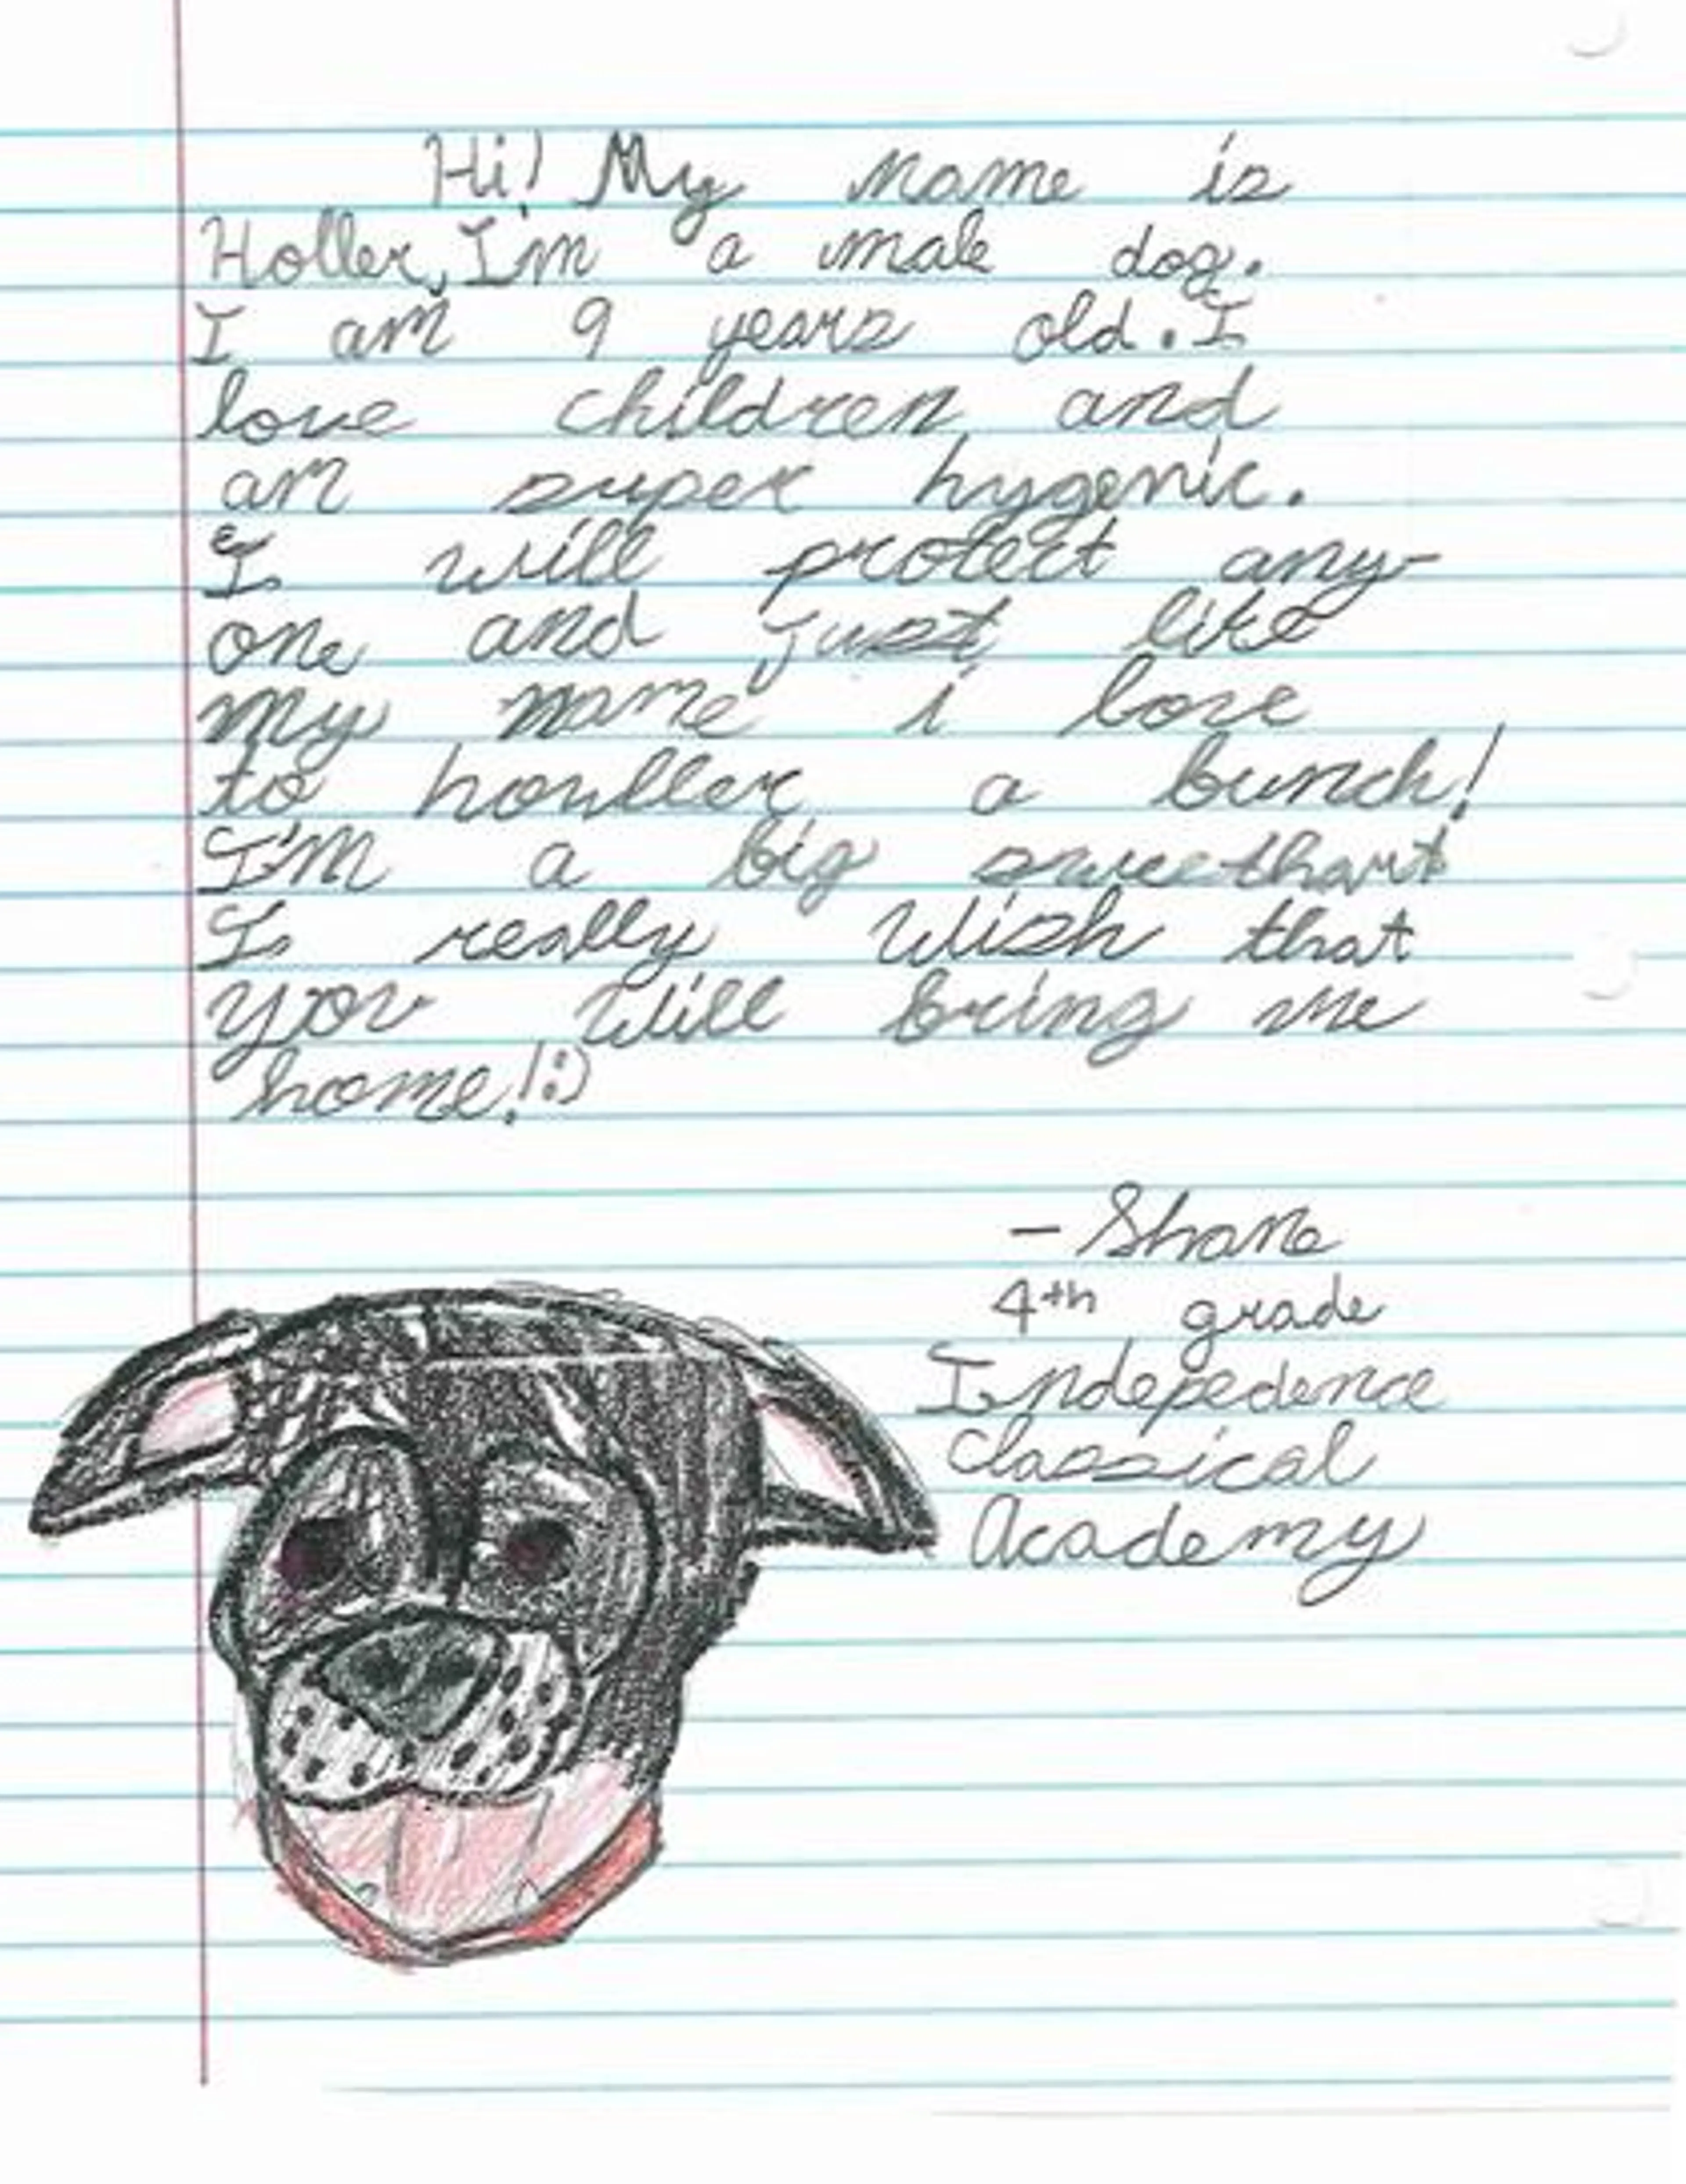 Hi! My name is
Holler, I'm a male dog.
I am 9 years old. I
love children and
am super hygenic.
I will protect any-
one and just like
my name i love
to honller a bunch!
I'm a big sweethart
I really Wish that
you Will bring me
home! :)
- Shane
4th grade
Indepedence
Classical
Academy